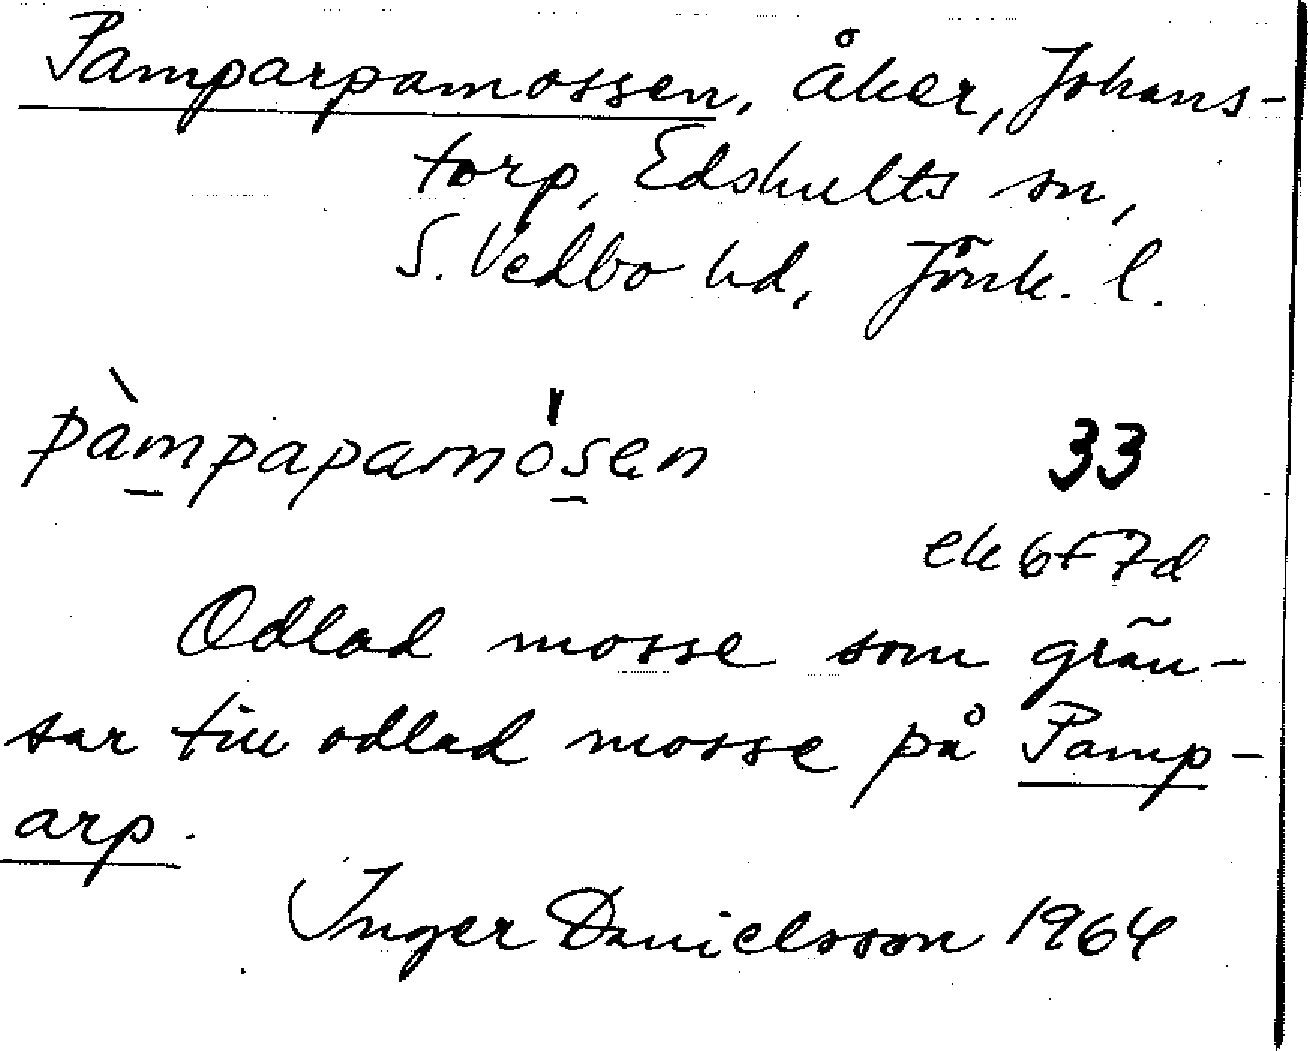 Pamparpamossen, åker, Johans-
torp, Edshults sn,
S. Vedbo hd, Jönk. l.
pàmpapamòsen 33
ek 6f7d
Odlad mosse som grän-
sar till odlad mosse på Pamp-
arp.
Inger Danielsson 1964